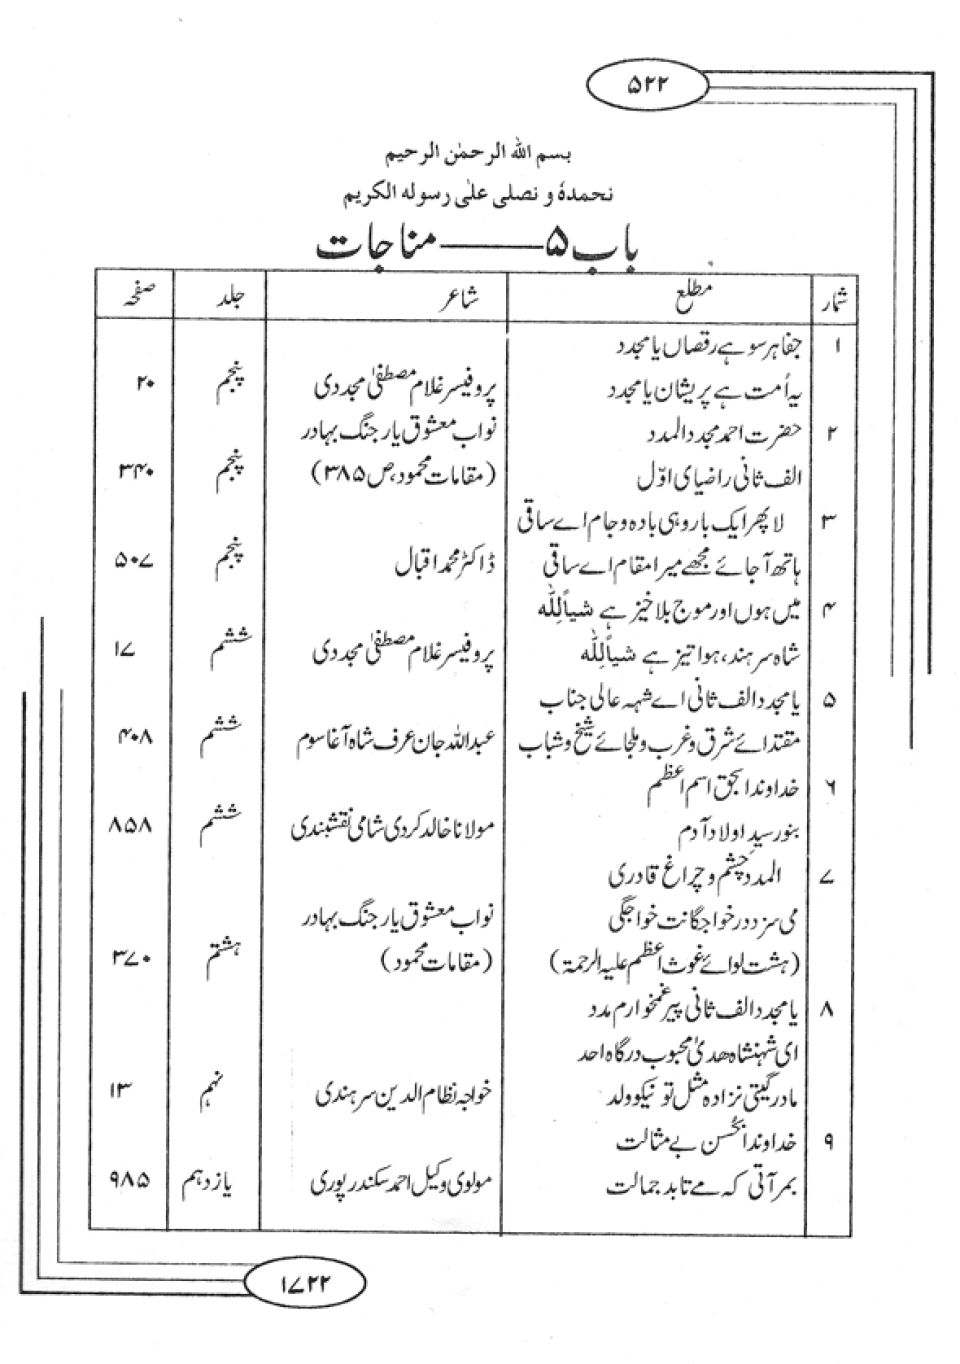 ۵۲۲
بسم الله الرحمٰن الرحیم
نحمدہٗ و نصلی علیٰ رسولہ الکریم
باب ۵ ــــــ مناجات
شمار مطلع شاعر جلد صفحہ
۱ جفا ہر سو ہے رقصاں یا مجدد
یہ اُمت ہے پریشان یا مجدد پروفیسر غلام مصطفیٰ مجددی پنجم ۲۰
۲ حضرت احمد مجدد المدد نواب معشوق یار جنگ بہادر
الف ثانی را ضیای اوّل (مقامات محمود، ص ۳۸۵) پنجم ۳۴۰
۳ لا پھر ایک بار وہی بادہ و جام اے ساقی
ہاتھ آ جائے مجھے میرا مقام اے ساقی ڈاکٹر محمد اقبال پنجم ۵۰۷
۴ میں ہوں اور موج بلا خیز ہے شیاًلِلّٰه
شاہ سرہند، ہوا تیز ہے شیاًلِلّٰه پروفیسر غلام مصطفیٰ مجددی ششم ۱۷
۵ یا مجدد الف ثانی اے شہہ عالی جناب
مقتدائے شرق و غرب و ملجائے شیخ و شباب عبداللہ جان عرف شاہ آغا سوم ششم ۴۰۸
۶ خداوندا بحق اسم اعظم
بنور سیدِ اولاد آدم مولانا خالد کردی شامی نقشبندی ششم ۸۵۸
۷ المدد چشم و چراغ قادری
می سزد در خواجگانت خواجگی نواب معشوق یار جنگ بہادر
(ہشت لوائے غوث اعظم علیہ الرحمۃ) (مقامات محمود) ہشتم ۳۷۰
۸ یا مجدد الف ثانی پیر غمخوارم مدد
ای شہنشاہ ھدیٰ محبوب درگاہ احد
مادر گیتی نزادہ مثل تو نیکو ولد خواجہ نظام الدین سرہندی نہم ۱۳
۹ خداوندا بحُسن بے مثالت
بمرآتی کہ مے تابد جمالت مولوی وکیل احمد سکندرپوری یازدہم ۹۸۵
۱۷۲۲